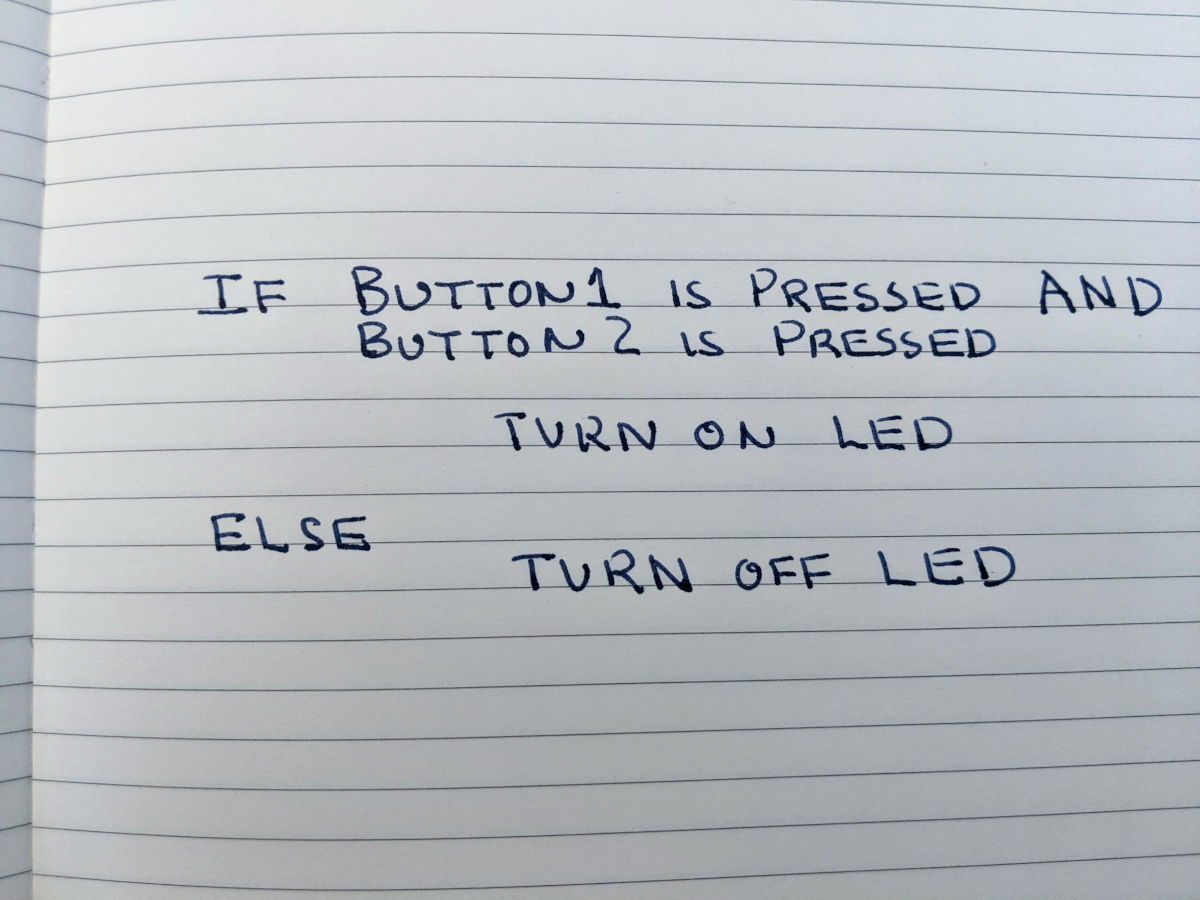 IF BUTTON1 IS PRESSED AND
BUTTON 2 IS PRESSED
TURN ON LED
ELSE
TURN OFF LED